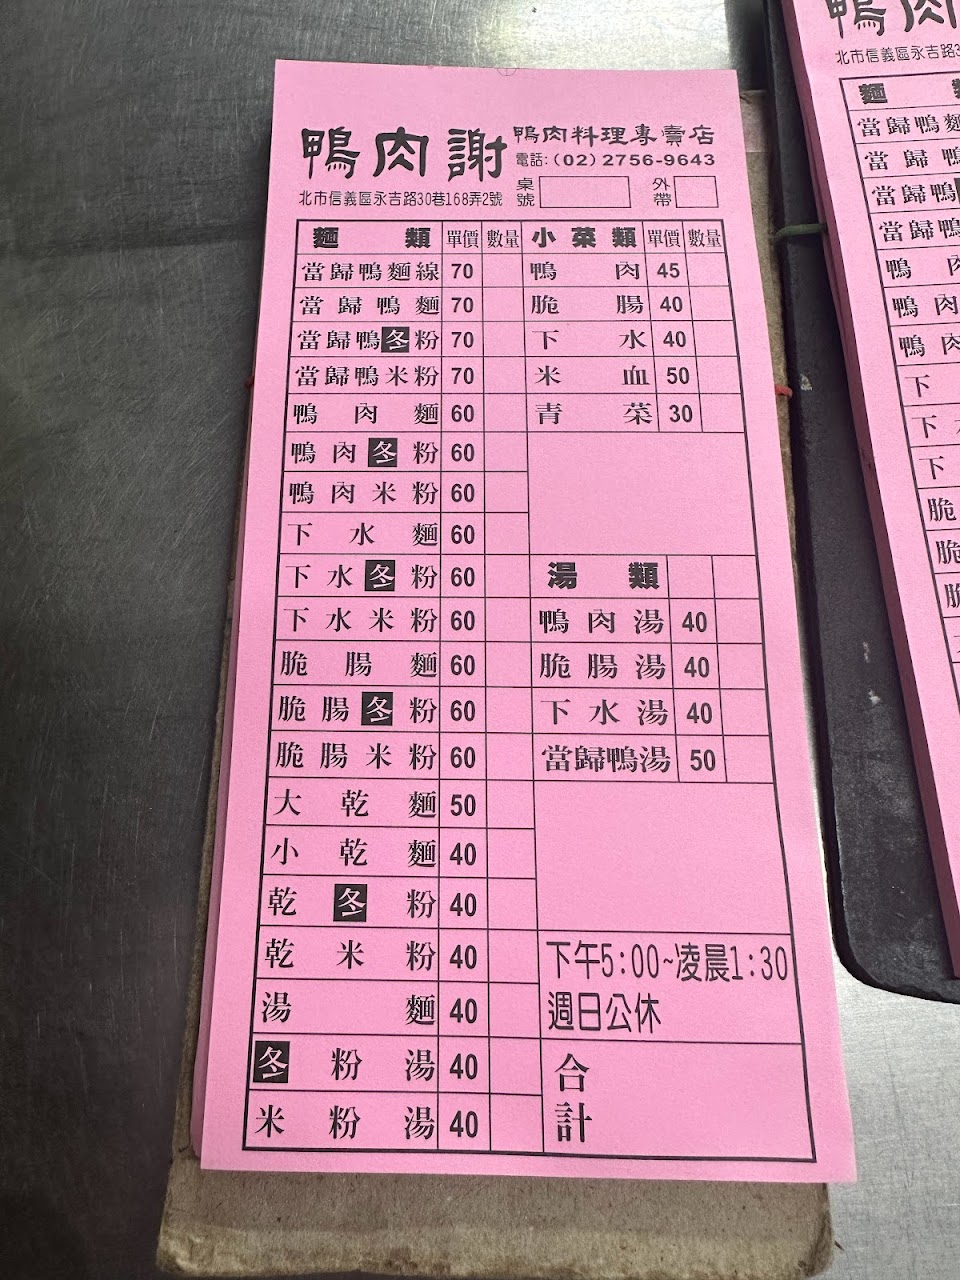 鴨肉謝 鴨肉料理專賣店
電話:(02)2756-9643
北市信義區永吉路30巷168弄2號 桌號 外帶
麵類 單價 數量 小菜類 單價 數量
當歸鴨麵線 70 鴨肉 45
當歸鴨麵 70 脆腸 40
當歸鴨冬粉 70 下水 40
當歸鴨米粉 70 米血 50
鴨肉麵 60 青菜 30
鴨肉冬粉 60
鴨肉米粉 60
下水麵 60
下水冬粉 60 湯類
下水米粉 60 鴨肉湯 40
脆腸麵 60 脆腸湯 40
脆腸冬粉 60 下水湯 40
脆腸米粉 60 當歸鴨湯 50
大乾麵 50
小乾麵 40
乾冬粉 40
乾米粉 40 下午5:00~凌晨1:30
湯麵 40 週日公休
冬粉湯 40 合計
米粉湯 40
鴨肉
北市信義區永吉路3
麵
當歸鴨麵
當歸鴨
當歸鴨
當歸鴨
鴨
鴨肉
鴨肉
下
下
下
脆
脆